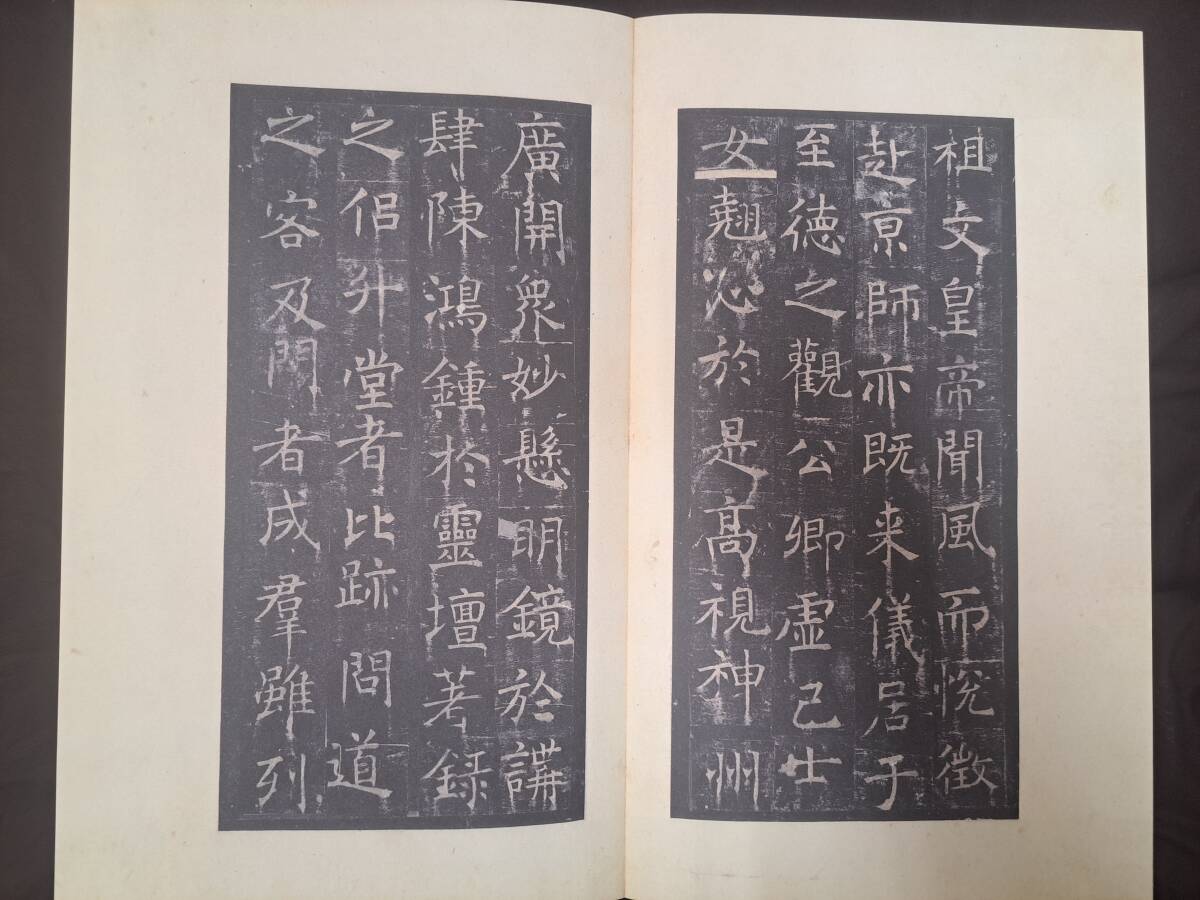 祖文皇帝聞風而悅徵
赴京師亦既来儀居于
至德之觀公卿虛己士
女翹心於是髙視神州
廣開衆妙懸明鏡於講
肆陳鴻鍾於靈壇著録
之侶升堂者比跡問道
之客及門者成羣雖列